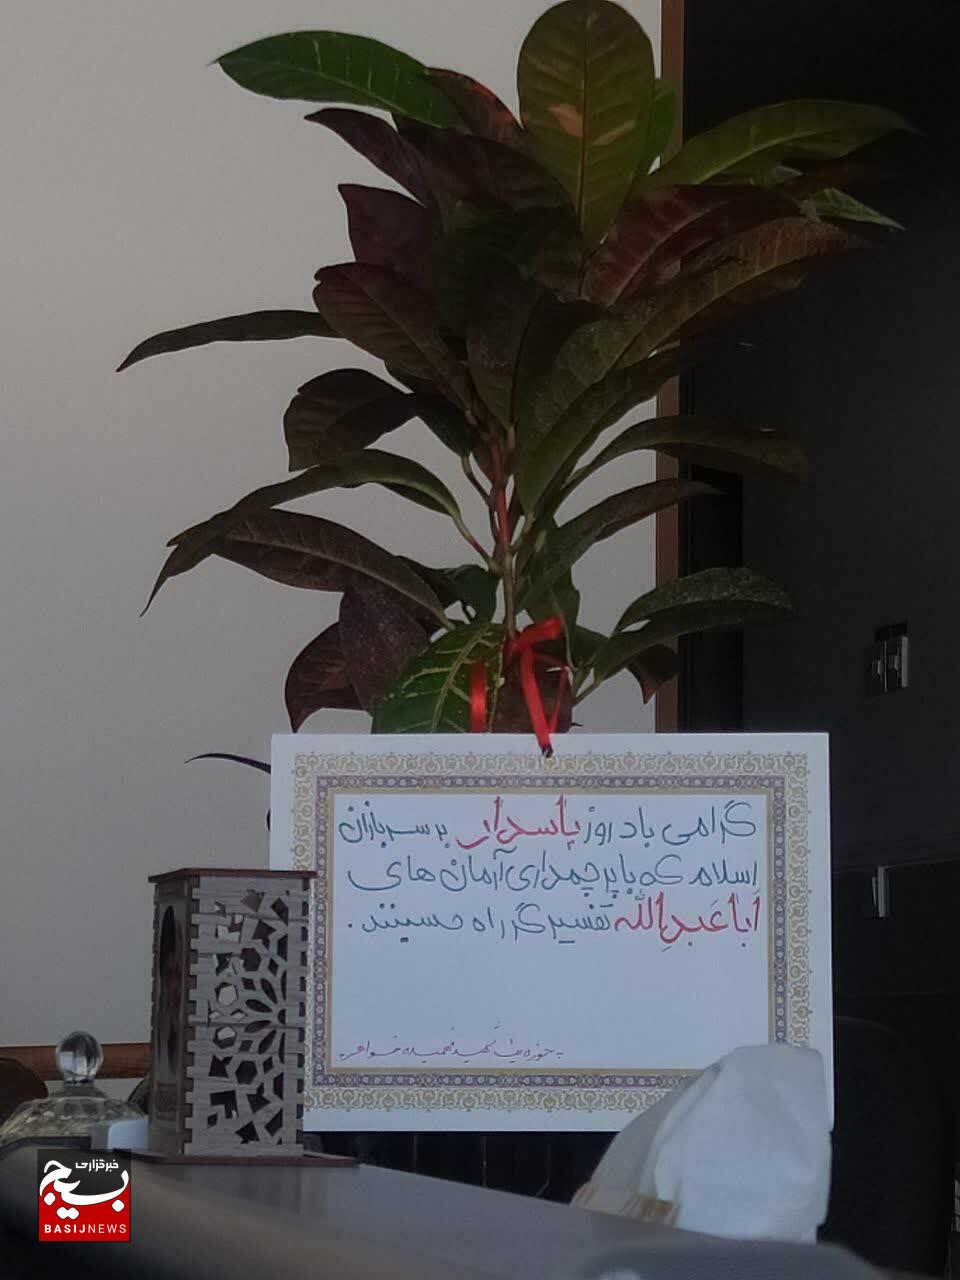 گرامی باد روز پاسدار بر سربازان
اسلام که با پرچمداری آرمان های
اَباعَبدِاللّه تفسیرگر راه حسینند.
خبرگزاری
بسیج
BASIJNEWS